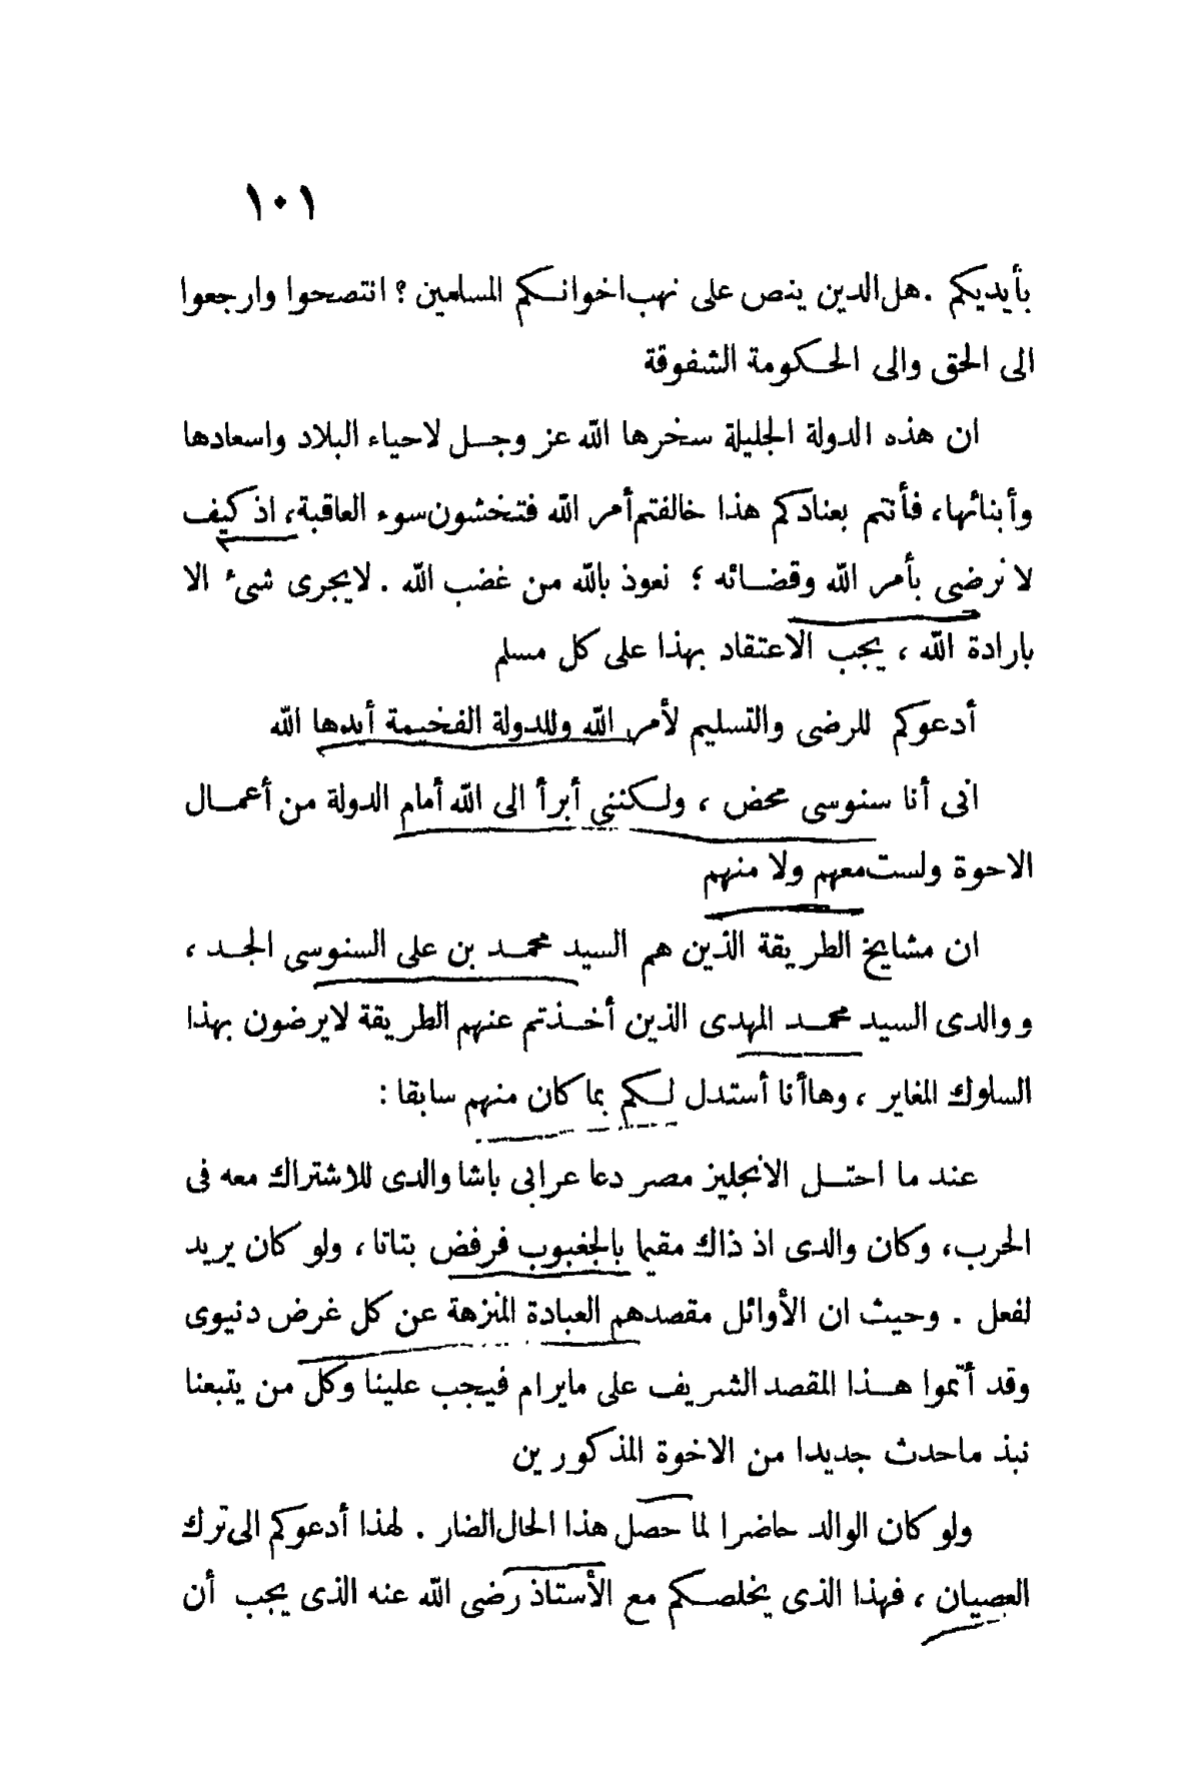 ١٠١
بأيديكم . هل الدين ينص على نهب اخوانكم المسلمين ؟ انتصحوا وارجعوا
الى الحق والى الحكومة الشفوقة
ان هذه الدولة الجليلة سخرها الله عز وجل لاحياء البلاد واسعادها
وأبنائها، فأنتم بعنادكم هذا خالفتم أمر الله فتخشون سوء العاقبة، اذ كيف
لا نرضى بأمر الله وقضائه ؛ نعوذ بالله من غضب الله . لايجرى شىء الا
بارادة الله ، يجب الاعتقاد بهذا على كل مسلم
أدعوكم للرضى والتسليم لأمر الله وللدولة الفخيمة أيدها الله
انى أنا سنوسى محض ، ولكننى أبرأ الى الله أمام الدولة من أعمال
الاحوة ولست معهم ولا منهم
ان مشايخ الطريقة الذين هم السيد محمد بن على السنوسى الجد ،
و والدى السيد محمد المهدى الذين أخذتم عنهم الطريقة لايرضون بهذا
السلوك المغاير ، وهاأنا أستدل لكم بما كان منهم سابقا :
عند ما احتل الانجليز مصر دعا عرابى باشا والدى للاشتراك معه فى
الحرب، وكان والدى اذ ذاك مقيما بالجغبوب فرفض بتاتا ، ولو كان يريد
لفعل . وحيث ان الأوائل مقصدهم العبادة المنزهة عن كل غرض دنيوى
وقد أتموا هذا المقصد الشريف على مايرام فيجب علينا وكل من يتبعنا
نبذ ماحدث جديدا من الاخوة المذكورين
ولو كان الوالد حاضرا لما حصل هذا الحال الضار . لهذا أدعوكم الى ترك
العصيان ، فهذا الذى يخلصكم مع الأستاذ رضى الله عنه الذى يجب أن